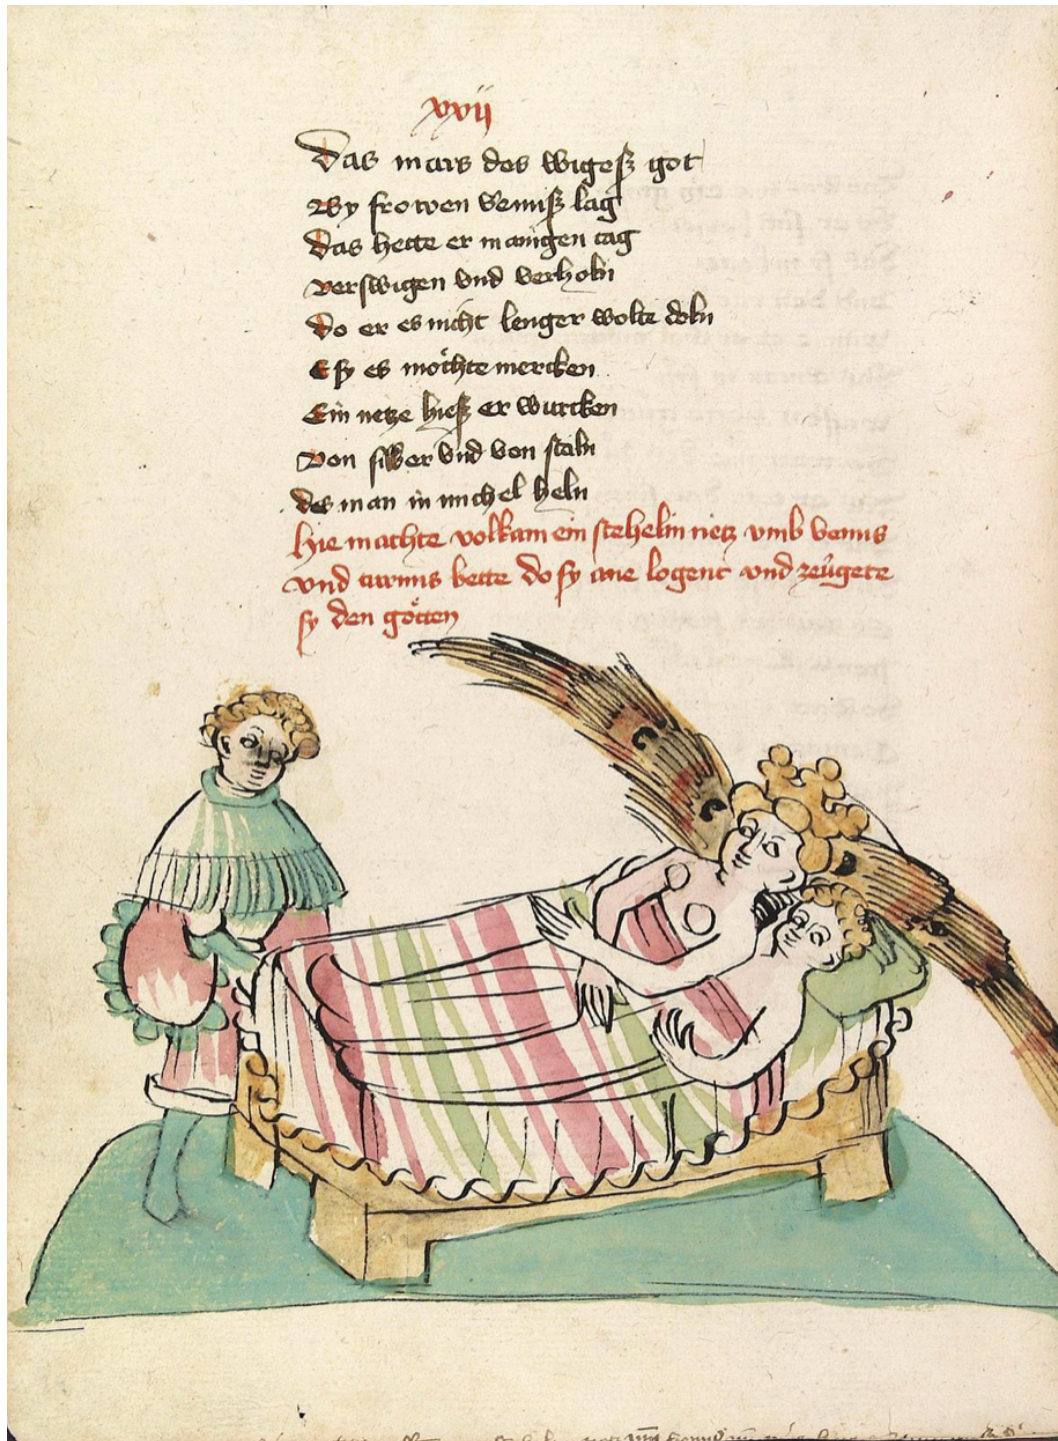 xvij
Das mars des wigeß got
By frowen Venuß lag
Das hette er manigen tag
Verswigen vnd verholn
Do er es nicht lenger wolte doln
E sy es möchte mercken
Ein netze hieß er wurcken
Von silber vnd von staln
des man in michel heln
hie machte volkam ein stehelin netz vmb venus
vnd bette do sy ane logent vnd zeügete
sy den götten